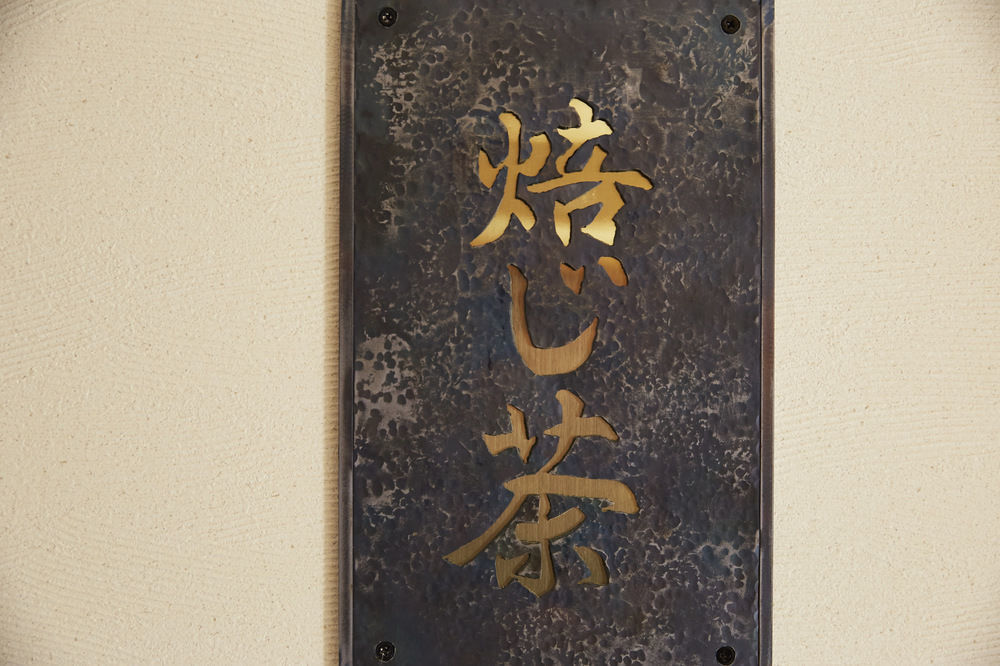 焙じ茶